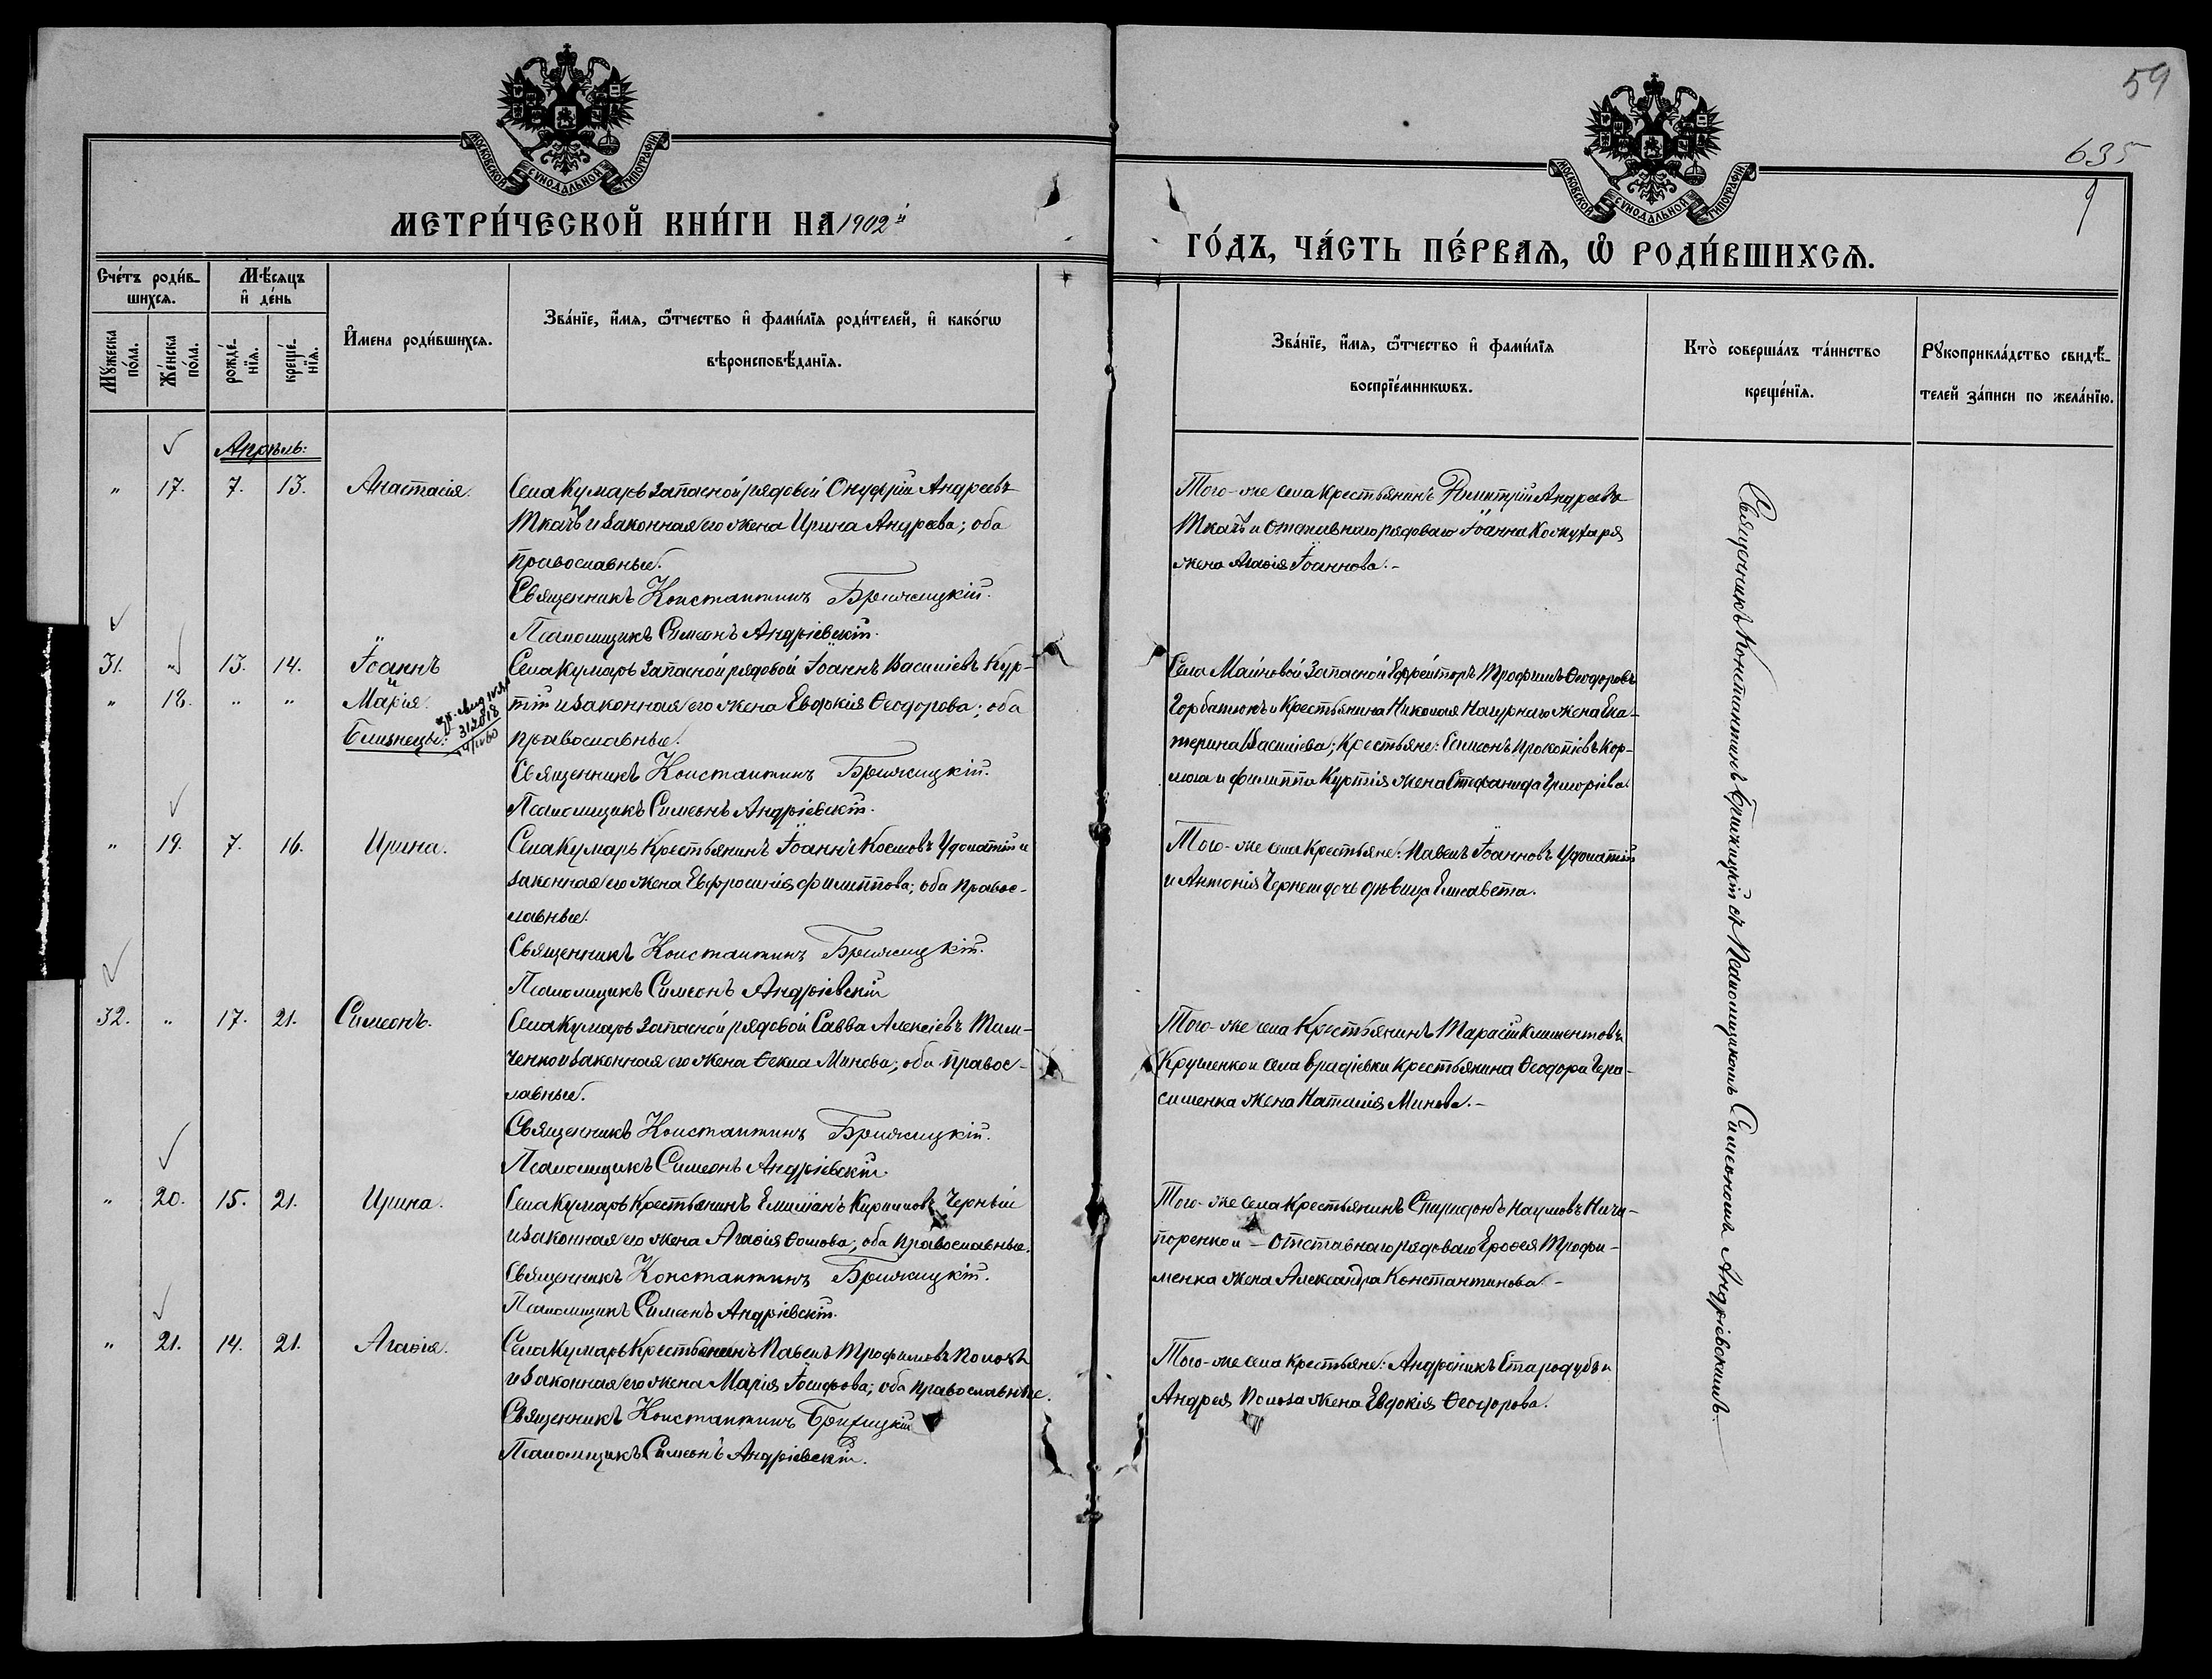 59
635
9
МОСКОВСКОЙ СѴНОДАЛЬНОЙ ТИПОГРАФІИ
МОСКОВСКОЙ СѴНОДАЛЬНОЙ ТИПОГРАФІИ
МЕТРИ́ЧЕСКОЙ КНИ́ГИ НА 1902 й
ГО́ДЪ, ЧА́СТЬ ПЕ́РВАѦ, Ѡ҆ РОДИ́ВШИХСѦ.
Сче́тъ роди́в-
шихсѧ.
Мѣ́сѧцъ
и҆ де́нь
Мꙋ́жеска
по́ла.
Же́нска
по́ла.
рожде́-
нїѧ.
креще́-
нїѧ.
И҆мена роди́вшихсѧ.
Зва́нїе, и҆́мѧ, ѻ҆́тчество и҆ фами́лїѧ роди́телей, и҆ како́гѡ
вѣроисповѣ́данїѧ.
Зва́нїе, и҆́мѧ, ѻ҆́тчество и҆ фами́лїѧ
воспрїе́мникѡвъ.
Кто̀ соверша́лъ та́инство
креще́нїѧ.
Рꙋкоприкла́дство свидѣ́-
телей за́писи по жела́нїю.
Апрѣль:
" 17. 7. 13. Анастасія.
Села Кумаръ запасной рядовой Онуфрій Андреевъ
Ткачъ и законная его жена Ирина Андреева; оба
православные.
Священникъ Константинъ Брижицкій.
Псаломщикъ Симеонъ Андріевскій.
Того-же села крестьянинъ Димитрій Андреевъ
Ткачъ и отставнаго рядоваго Іоанна Кожухаря
жена Агаѳія Іоаннова.-
31. " 13. 14. Іоаннъ
и
" 18. " " Марія
Близнецы:
312818
Села Кумаръ запасной рядовой Іоаннъ Василіевъ Кур-
тій и законная его жена Евдокія Ѳеодорова; оба
православные.
Священникъ Константинъ Брижицкій.
Псаломщикъ Симеонъ Андріевскій.
Села Маиновой запасной Ефрейторъ Трофимъ Ѳеодоровъ
Горбатюкъ и крестьянина Николая Нагурнаго жена Ека-
терина Василіева; крестьяне: Симеонъ Прокопіевъ Кор-
и Филиппа Куртія жена Стефанида Григоріева.
" 19. 7. 16. Ирина.
Села Кумаръ крестьянинъ Іоаннъ Космовъ Удолатій и
законная его жена Евфросинія Филиппова; оба правос-
лавные.
Священникъ Константинъ Брижицкій.
Псаломщикъ Симеонъ Андріевскій
Того-же села крестьяне: Павелъ Іоанновъ Удолатій
и Антонія дочь дѣвица Елисавета.
32. " 17. 21. Симеонъ.
Села Кумаръ запасной рядовой Савва Алексіевъ Тим-
ченко и законная его жена Ѳекла Минева; оба правос-
лавные.
Священникъ Константинъ Брижицкій.
Псаломщикъ Симеонъ Андріевскій
Того-же села крестьянинъ Тарасій Климентовъ
Крушенко и села Врадіевки крестьянина Ѳеодора Гера-
сименка жена Наталія Минева.-
" 20. 15. 21. Ирина.
Села Кумаръ крестьянинъ Емиліанъ Кирилловъ Черный
и законная его жена Агаѳія Ѳомова; оба православные.
Священникъ Константинъ Брижицкій.
Псаломщикъ Симеонъ Андріевскій.
Того-же села крестьянинъ Спиридонъ Наумовъ Ничи-
поренко и - отставнаго рядоваго Ероѳея Трофи-
менка жена Александра Константинова.-
" 21. 14. 21. Агаѳія.
Села Кумаръ крестьянинъ Павелъ Трофимовъ Полозъ
и законная его жена Марія Іосифова; оба православные.
Священникъ Константинъ Брижицкій
Псаломщикъ Симеонъ Андріевскій.
Того-же села крестьяне: Андроникъ Стародубъ и
Андрея Полоза жена Евдокія Ѳеодорова.
Священникъ Константинъ Брижицкій съ Псаломщикомъ Симеономъ Андріевскимъ.